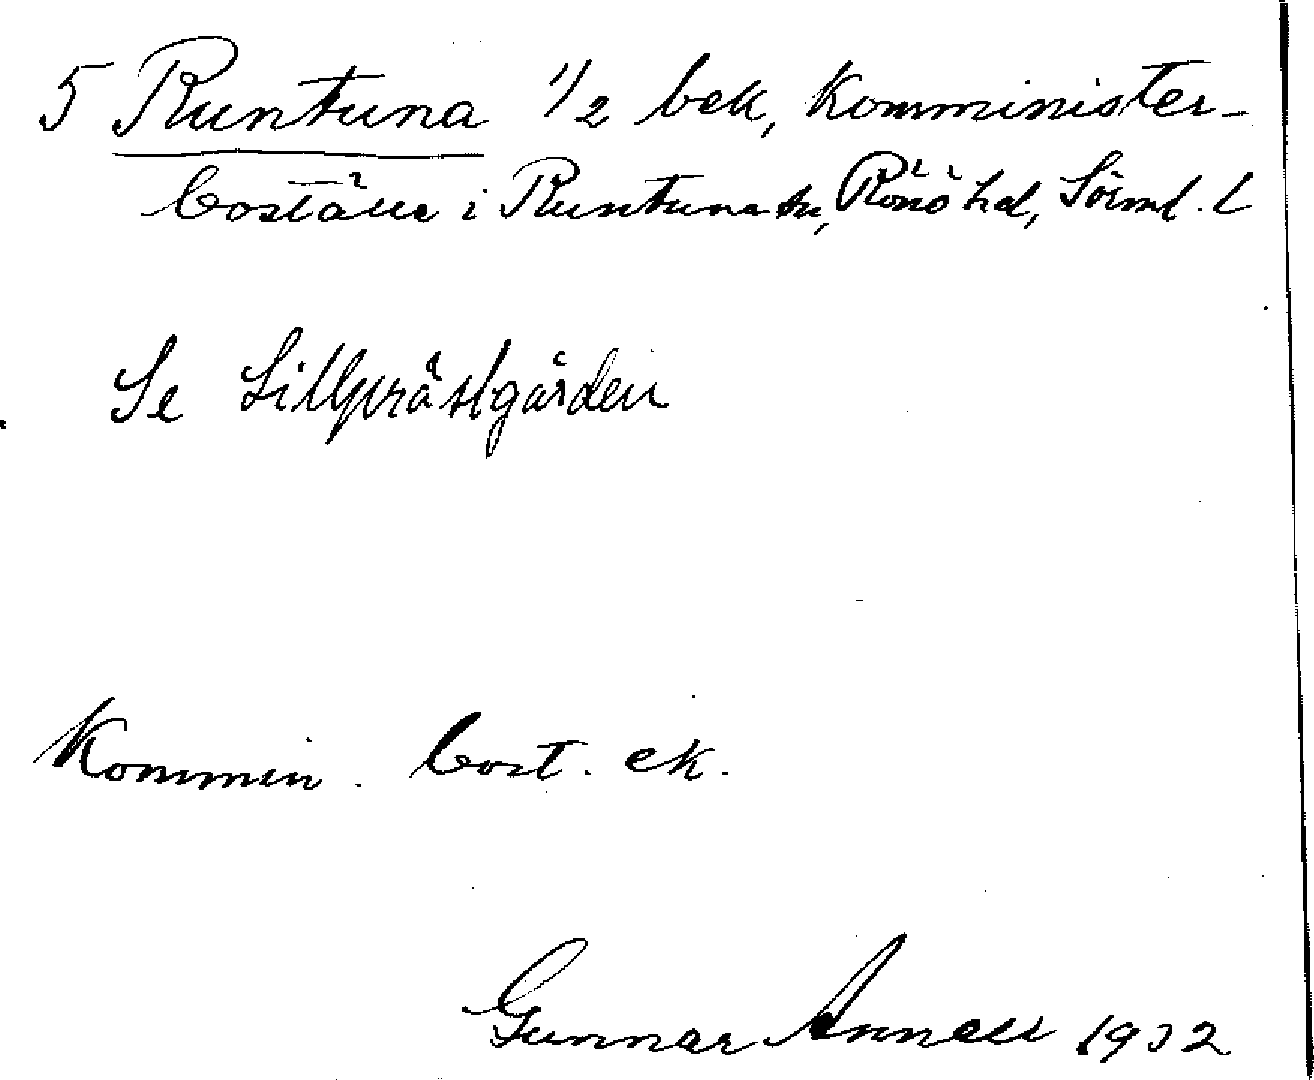 5 Runtuna 1/2 bek, Komminister-
boställe i Runtuna sn, Rönö hd, Sörml. L
Se Lillprästgården
Kommin. bost. ek.
Gunnar Annell 1932